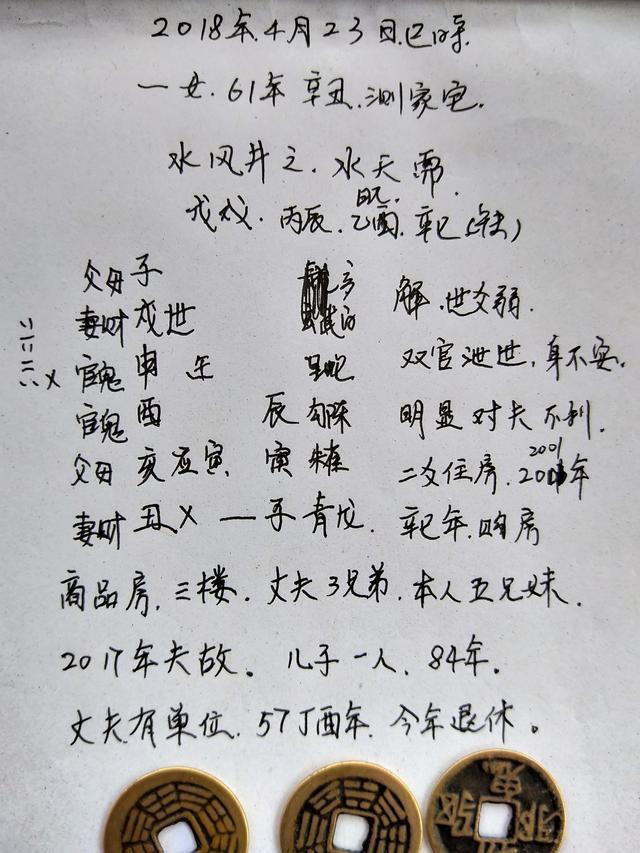 2018年.4月23日.巳时.
一女.61年 辛丑.测家宅.
水风井之.水天需.
戊戌.丙辰.乙酉.辛巳(午未)
父母子
妻财戌世 解.世爻弱.
官鬼申 午 双官泄世.身不安.
官鬼酉 辰 勾陈 明显对夫不利.
父母亥应寅 寅 朱雀 二爻住房.2001年
妻财丑X — 子青龙. 辛巳年.购房
商品房.三楼.丈夫3兄弟.本人五兄妹.
2017年夫故。儿子一人.84年.
丈夫有单位.57丁酉年.今年退休。